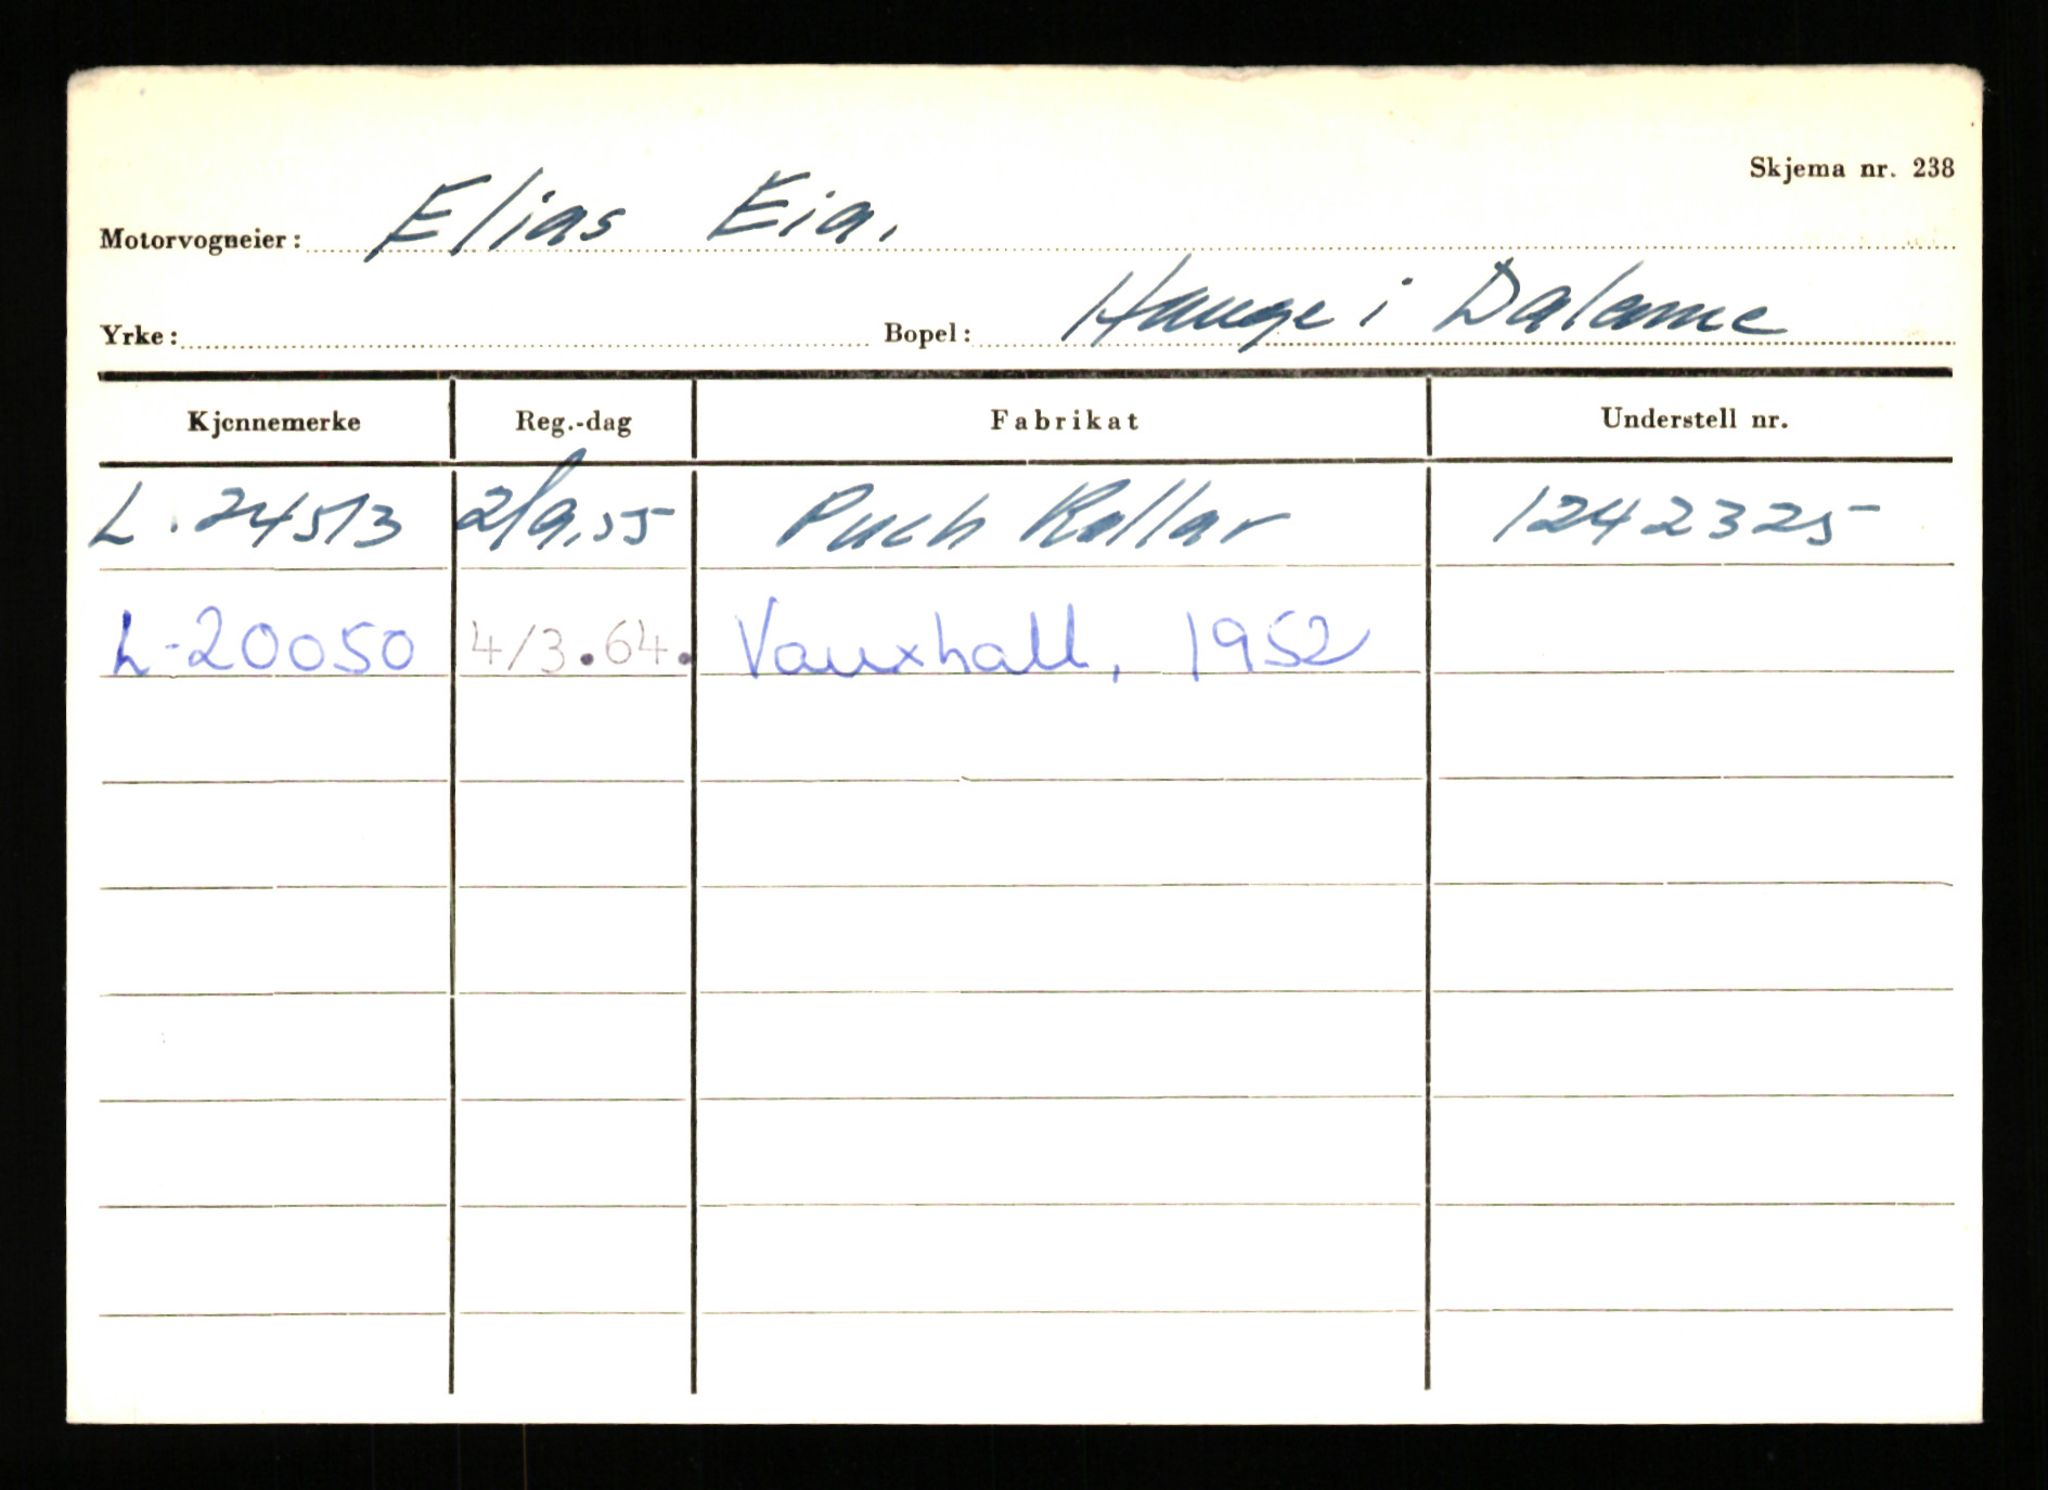 Skjema nr. 238
Motorvogneier: Elias Eia.
Yrke: Bopel: Hauge i Dalane
Kjennemerke Reg.-dag Fabrikat Understell nr.
L. 24513 2/9,55 Puch Rollar 1242325
L-20050 4/3.64. Vauxhall, 1952